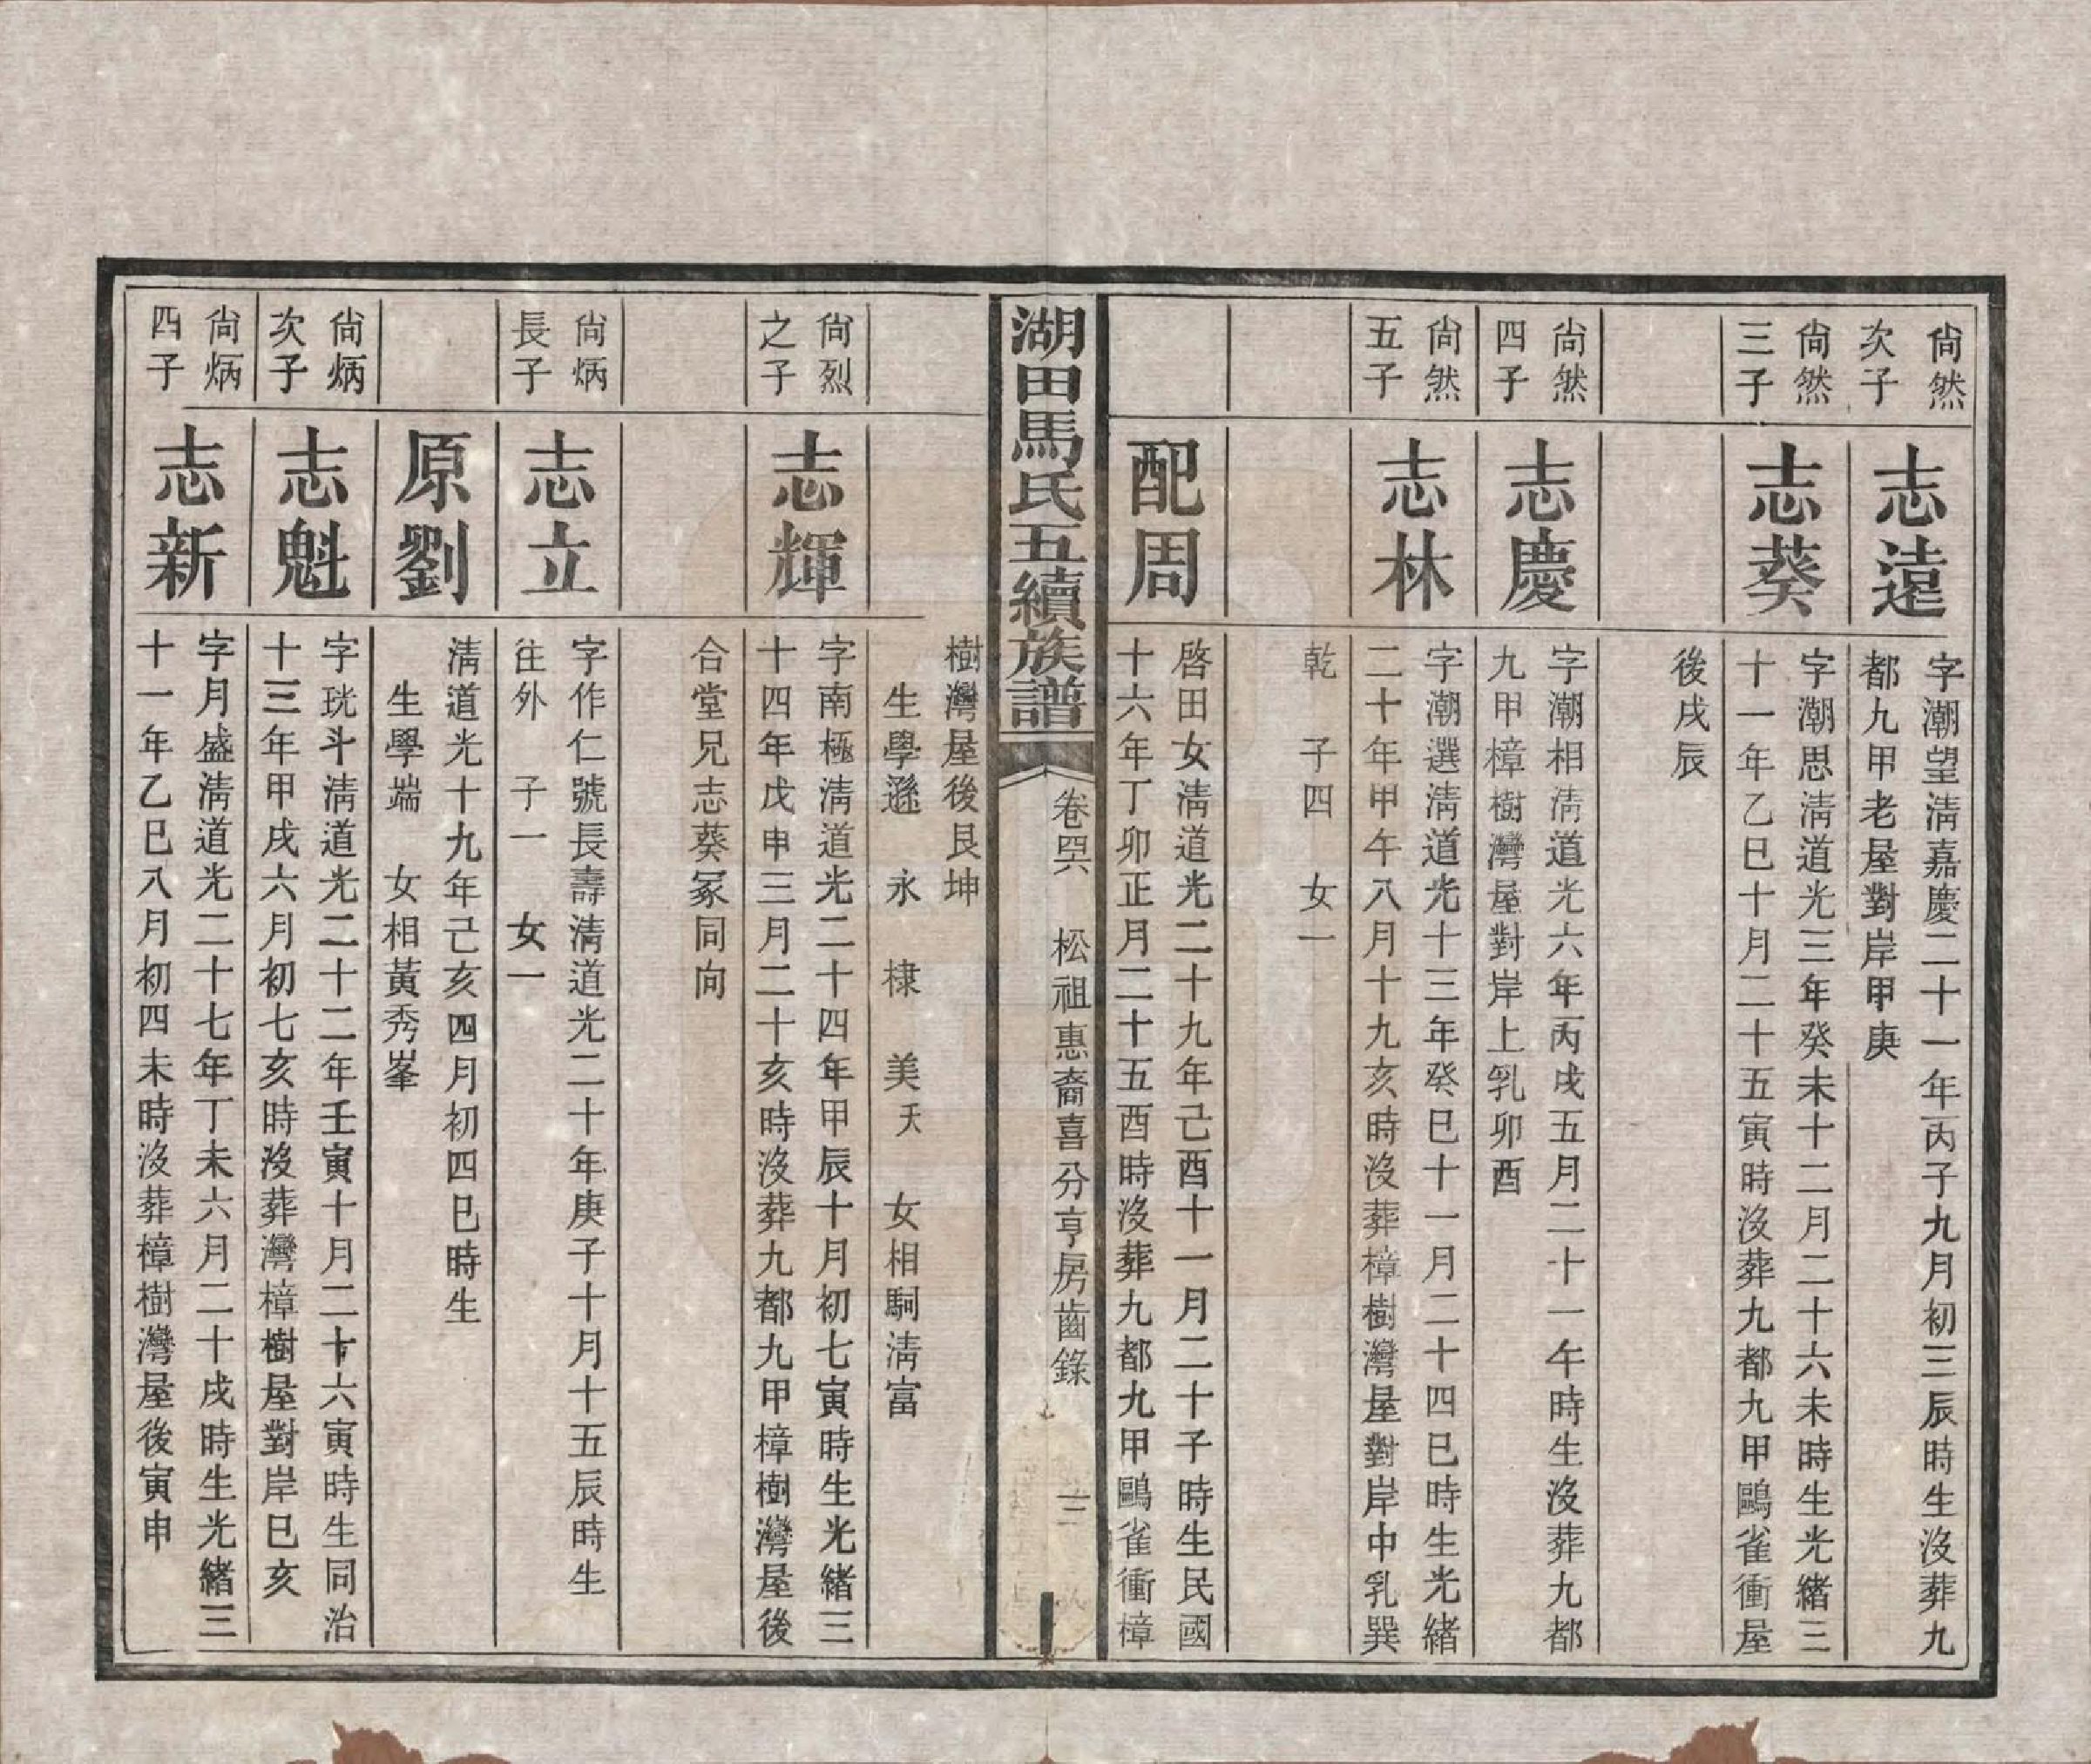 尙然
次子
志遠
字潮望淸嘉慶二十一年丙子九月初三辰時生沒葬九
都九甲老屋對岸甲庚
尙然
三子
志葵
字潮思淸道光三年癸未十二月二十六未時生光緖三
十一年乙巳十月二十五寅時沒葬九都九甲鷗雀衝屋
後戌辰
尙然
四子
志慶
字潮相淸道光六年丙戌五月二十一午時生沒葬九都
九甲樟樹灣屋對岸上乳卯酉
尙然
五子
志林
字潮選淸道光十三年癸巳十一月二十四巳時生光緖
二十年甲午八月十九亥時沒葬樟樹灣屋對岸中乳巽
乾 子四 女一
配周
啓田女淸道光二十九年己酉十一月二十子時生民國
十六年丁卯正月二十五酉時沒葬九都九甲鷗雀衝樟
湖田馬氏五續族譜
卷四六 松祖惠裔喜分亨房齒錄
三
樹灣屋後艮坤
生學遜 永 棣 美夭 女相駉淸富
尙烈
之子
志輝
字南極淸道光二十四年甲辰十月初七寅時生光緖三
十四年戊申三月二十亥時沒葬九都九甲樟樹灣屋後
合堂兄志葵冢同向
尙炳
長子
志立
字作仁號長壽淸道光二十年庚子十月十五辰時生
往外 子一 女一
原劉
淸道光十九年己亥四月初四巳時生
生學端 女相黃秀峯
尙炳
次子
志魁
字珖斗淸道光二十二年壬寅十月二十六寅時生同治
十三年甲戌六月初七亥時沒葬灣樟樹屋對岸巳亥
尙炳
四子
志新
字月盛淸道光二十七年丁未六月二十戌時生光緖三
十一年乙巳八月初四未時沒葬樟樹灣屋後寅申